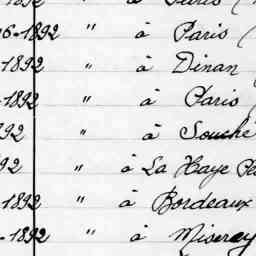 6-1892 " à Paris (
-1892 " à Dinan
-1892 " à Paris
92 " à Souche
92 " à La Haye Pe
1892 " à Bordeaux
-1892 " à Miserey